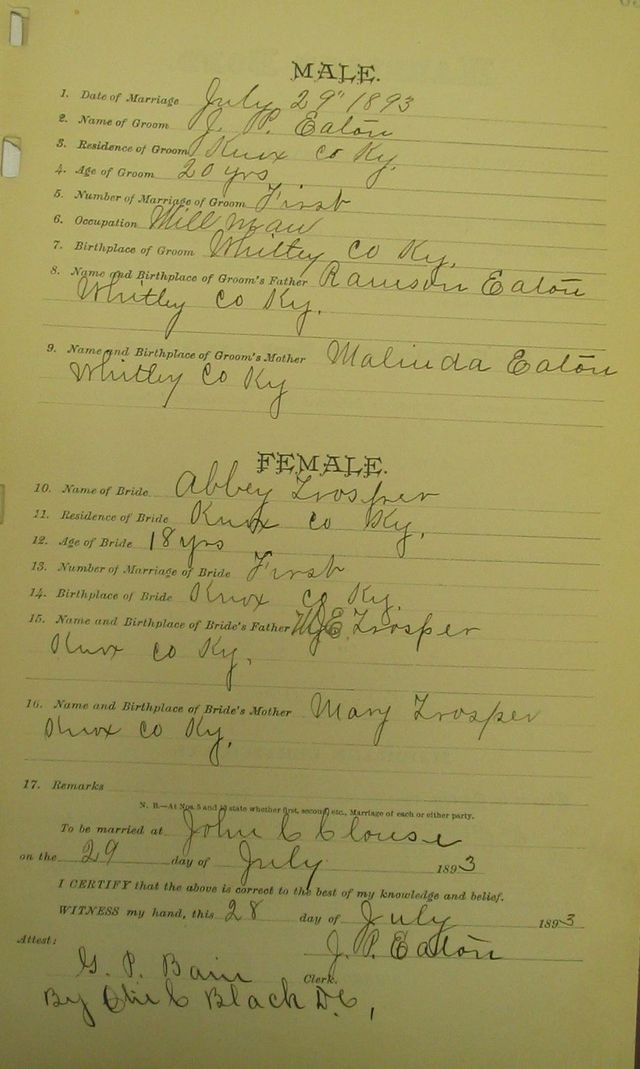 MALE.
1. Date of Marriage July 29" 1893
2. Name of Groom J. P. Eaton
3. Residence of Groom Knox Co Ky.
4. Age of Groom 20 yrs
5. Number of Marriage of Groom First
6. Occupation Mill man
7. Birthplace of Groom Whitley Co Ky.
8. Name and Birthplace of Groom's Father Ramson Eaton
Whitley Co Ky.
9. Name and Birthplace of Groom's Mother Malinda Eaton
Whitley Co Ky
FEMALE.
10. Name of Bride Abbey Trosper
11. Residence of Bride Knox Co Ky.
12. Age of Bride 18 yrs
13. Number of Marriage of Bride First
14. Birthplace of Bride Knox Co Ky.
15. Name and Birthplace of Bride's Father Trosper
Knox Co Ky.
16. Name and Birthplace of Bride's Mother Mary Trosper
Knox Co Ky.
17. Remarks
N. B.—At Nos. 5 and 13 state whether first, second, etc., Marriage of each or either party.
To be married at John C Clouse
on the 29 day of July 1893
I CERTIFY that the above is correct to the best of my knowledge and belief.
WITNESS my hand, this 28 day of July 1893
J. P. Eaton
Attest:
G. P. Bain Clerk.
By C Black D.C,